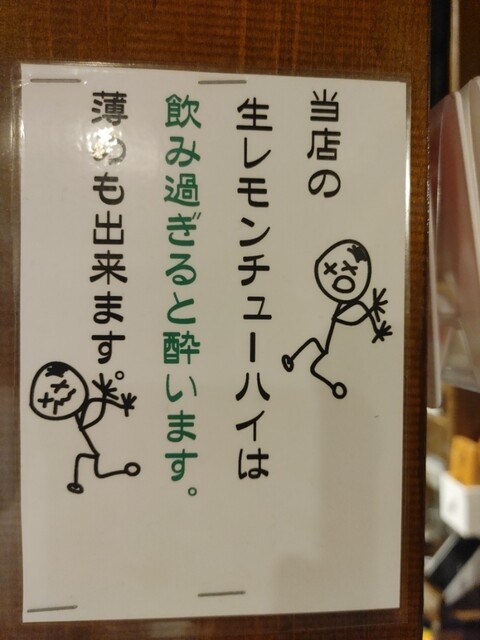 当店の
生レモンチューハイは
飲み過ぎると酔います。
薄めも出来ます。